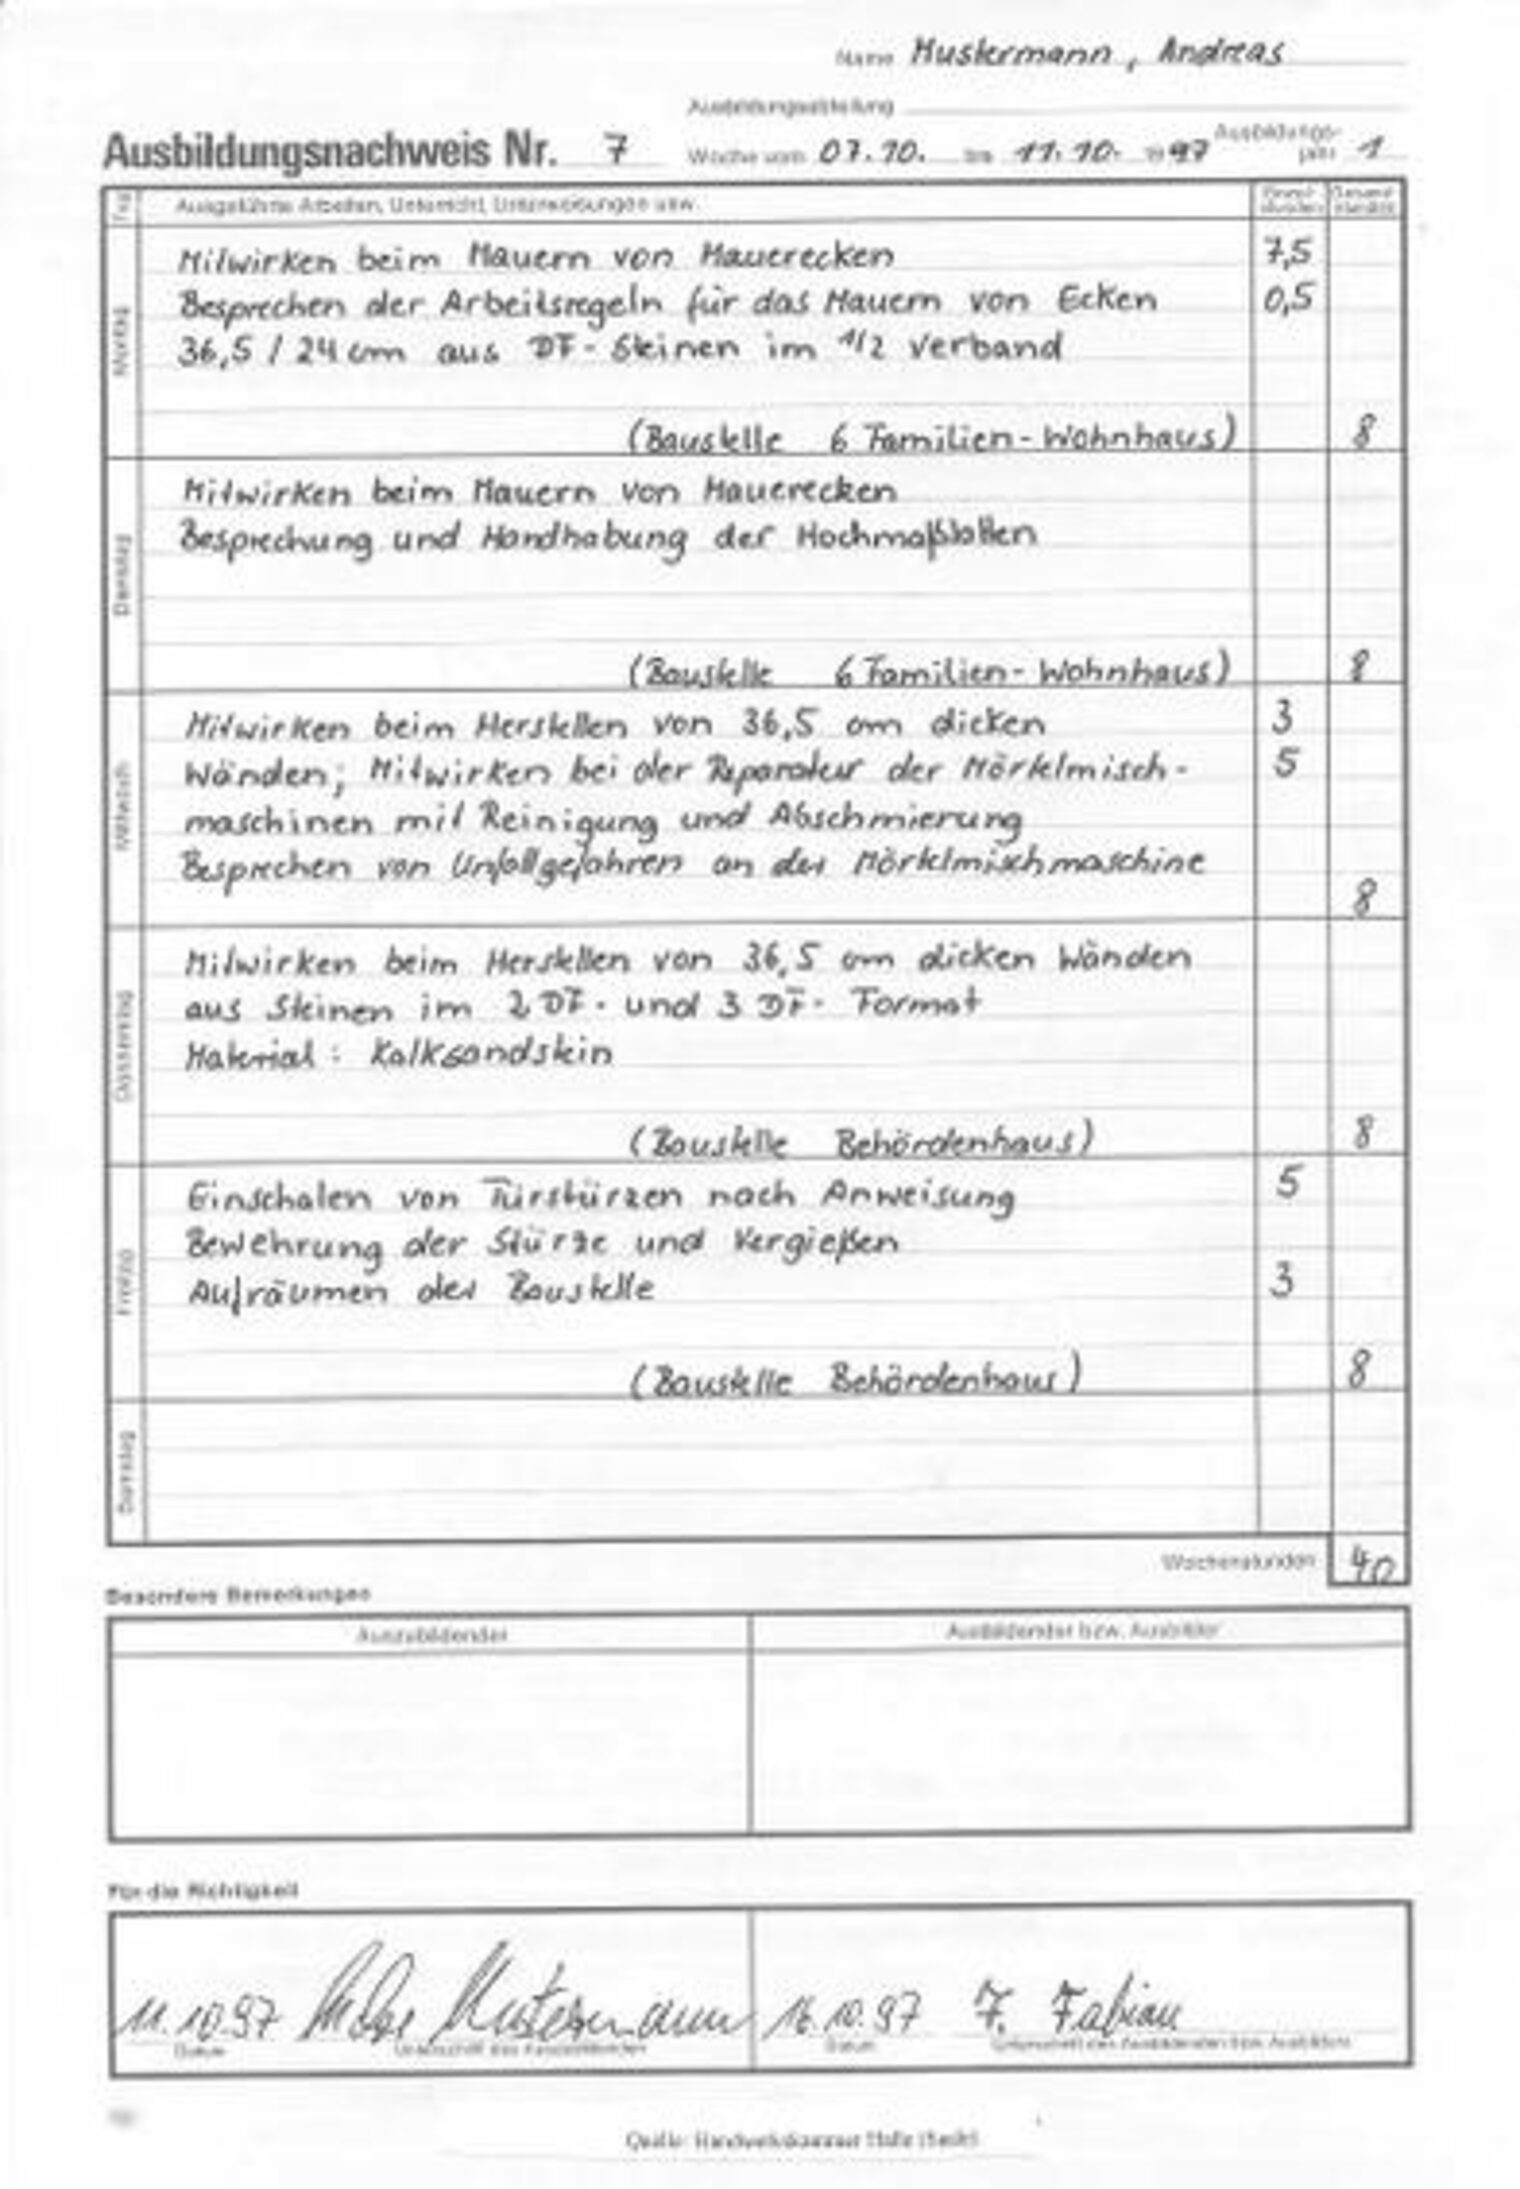 Name Mustermann, Andreas
Ausbildungsabteilung
Ausbildungsnachweis Nr. 7 Woche vom 07.10. bis 11.10. 1997 Ausbildungs-
jahr 1
Tag Ausgeführte Arbeiten, Unterricht, Unterweisungen usw. Einzel-
stunden Gesamt-
stunden
Montag
Mitwirken beim Mauern von Mauerecken 7,5
Besprechen der Arbeitsregeln für das Mauern von Ecken 0,5
36,5 / 24 cm aus DF - Steinen im 1/2 Verband
(Baustelle 6 Familien - Wohnhaus) 8
Dienstag
Mitwirken beim Mauern von Mauerecken
Besprechung und Handhabung der Hochmaßlatten
(Baustelle 6 Familien - Wohnhaus) 8
Mittwoch
Mitwirken beim Herstellen von 36,5 cm dicken 3
Wänden; Mitwirken bei der Reparatur der Mörtelmisch- 5
maschinen mit Reinigung und Abschmierung
Besprechen von Unfallgefahren an der Mörtelmischmaschine
8
Donnerstag
Mitwirken beim Herstellen von 36,5 cm dicken Wänden
aus Steinen im 2 DF - und 3 DF - Format
Material : Kalksandstein
(Baustelle Behördenhaus) 8
Freitag
Einschalen von Türstürzen nach Anweisung 5
Bewehrung der Stürze und Vergießen
Aufräumen der Baustelle 3
(Baustelle Behördenhaus) 8
Samstag
Wochenstunden 40
Besondere Bemerkungen
Auszubildender Ausbildender bzw. Ausbilder
Für die Richtigkeit
11.10.97 Mustermann 16.10.97 F. Fabian
Datum Unterschrift des Auszubildenden Datum Unterschrift des Ausbildenden bzw. Ausbilders
Quelle: Handwerkskammer Halle (Saale)